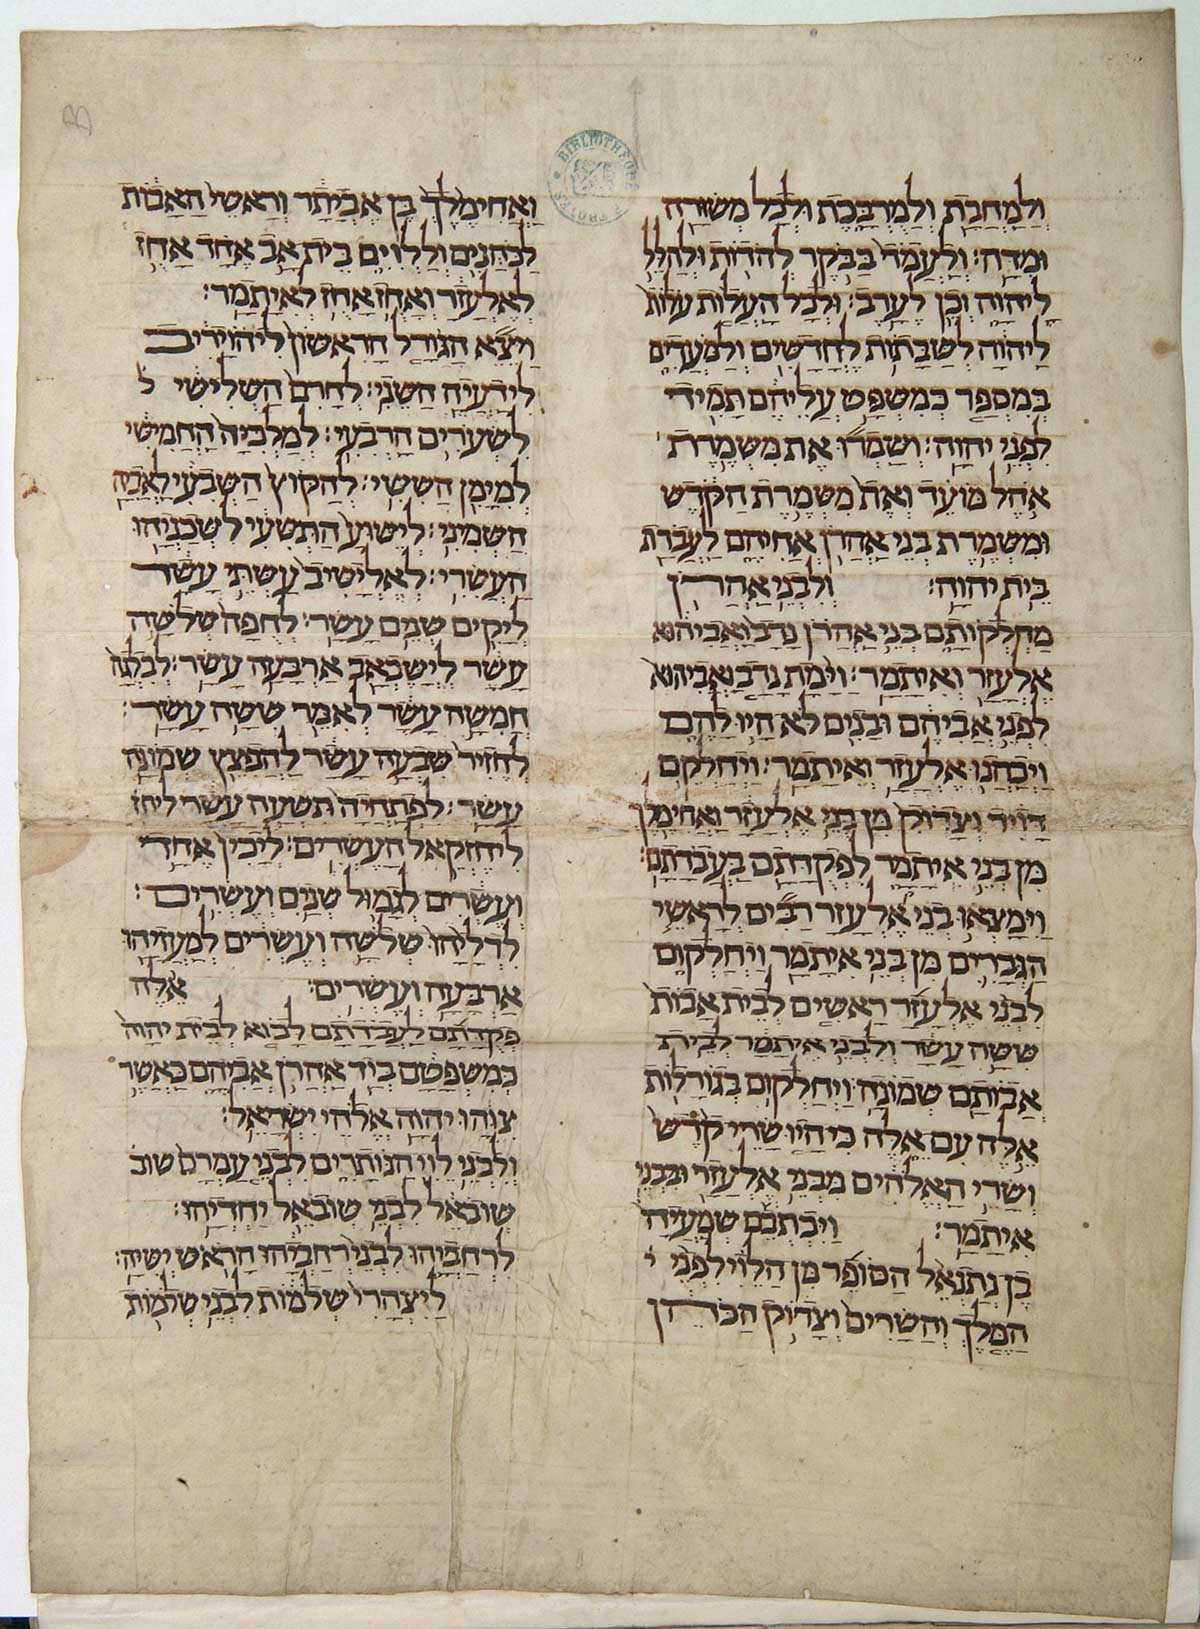 ולמחבת ולמרבכת ולכל משורה
ומדה׃ ולעמד בבקר בבקר להדות ולהלל
ליהוה וכן לערב׃ ולכל העלות עלות
ליהוה לשבתות לחדשים ולמעדים
במספר כמשפט עליהם תמיד
לפני יהוה׃ ושמרו את משמרת
אהל מועד ואת משמרת הקדש
ומשמרת בני אהרן אחיהם לעבדת
בית יהוה׃ ולבני אהרן
מחלקותם בני אהרן נדב ואביהוא
אלעזר ואיתמר׃ וימת נדב ואביהוא
לפני אביהם ובנים לא היו להם
ויכהנו אלעזר ואיתמר׃ ויחלקם
דויד וצדוק מן בני אלעזר ואחימלך
מן בני איתמר לפקדתם בעבדתם׃
וימצאו בני אלעזר רבים לראשי
הגברים מן בני איתמר ויחלקום
לבני אלעזר ראשים לבית אבות
ששה עשר ולבני איתמר לבית
אבותם שמונה׃ ויחלקום בגורלות
אלה עם אלה כי היו שרי קדש
ושרי האלהים מבני אלעזר ובבני
איתמר׃ ויכתבם שמעיה
בן נתנאל הסופר מן הלוי לפני
המלך והשרים וצדוק הכהן
ואחימלך בן אביתר וראשי האבות
לכהנים וללוים בית אב אחד אחז
לאלעזר ואחז אחז לאיתמר׃
ויצא הגורל הראשון ליהויריב
לידעיה השני׃ לחרם השלישי ל
לשערים הרבעי׃ למלכיה החמישי
למימן הששי׃ להקוץ השבעי לאביה
השמיני׃ לישוע התשעי לשכניהו
העשרי׃ לאלישיב עשתי עשר
ליקים שנים עשר׃ לחפה שלשה
עשר לישבאב ארבעה עשר׃ לבלגה
חמשה עשר לאמר ששה עשר׃
לחזיר שבעה עשר להפצץ שמונה
עשר׃ לפתחיה תשעה עשר ליחז
ליחזקאל העשרים׃ ליכין אחד
ועשרים לגמול שנים ועשרים׃
לדליהו שלשה ועשרים למעזיהו
ארבעה ועשרים׃ אלה
פקדתם לעבדתם לבוא לבית יהוה
כמשפטם ביד אהרן אביהם כאשר
צוהו יהוה אלהי ישראל׃
ולבני לוי הנותרים לבני עמרם שוב
שובאל לבני שובאל יחדיהו׃
לרחביהו לבני רחביהו הראש ישיה׃
ליצהרי שלמות לבני שלמות